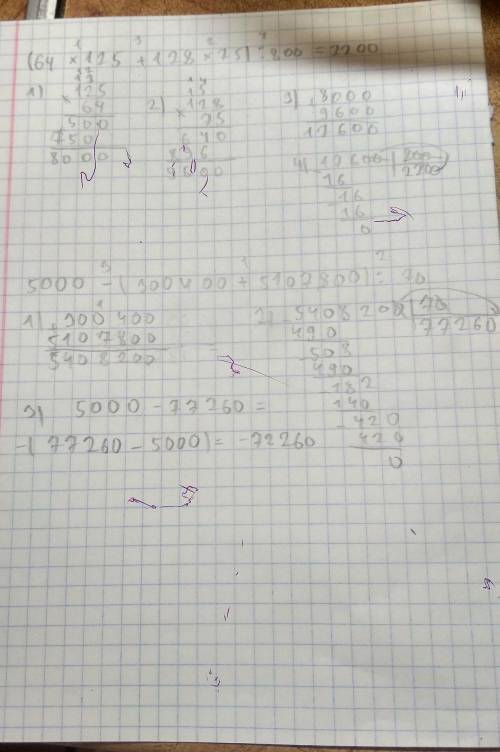 (64 × 125 + 128 × 75) : 800 = 2200
1) × 125
64
500
750
8000
2) × 128
75
640
896
9600
3) 8000
9600
17600
4) 17600 800
16 2200
16
16
0
5000 - (300400 + 5107800) : 70
1) 300 400
5107800
5408200
2) 5408200 70
490 77260
508
490
182
140
420
420
0
3) 5000 - 77260 =
-(77260 - 5000) = -72260